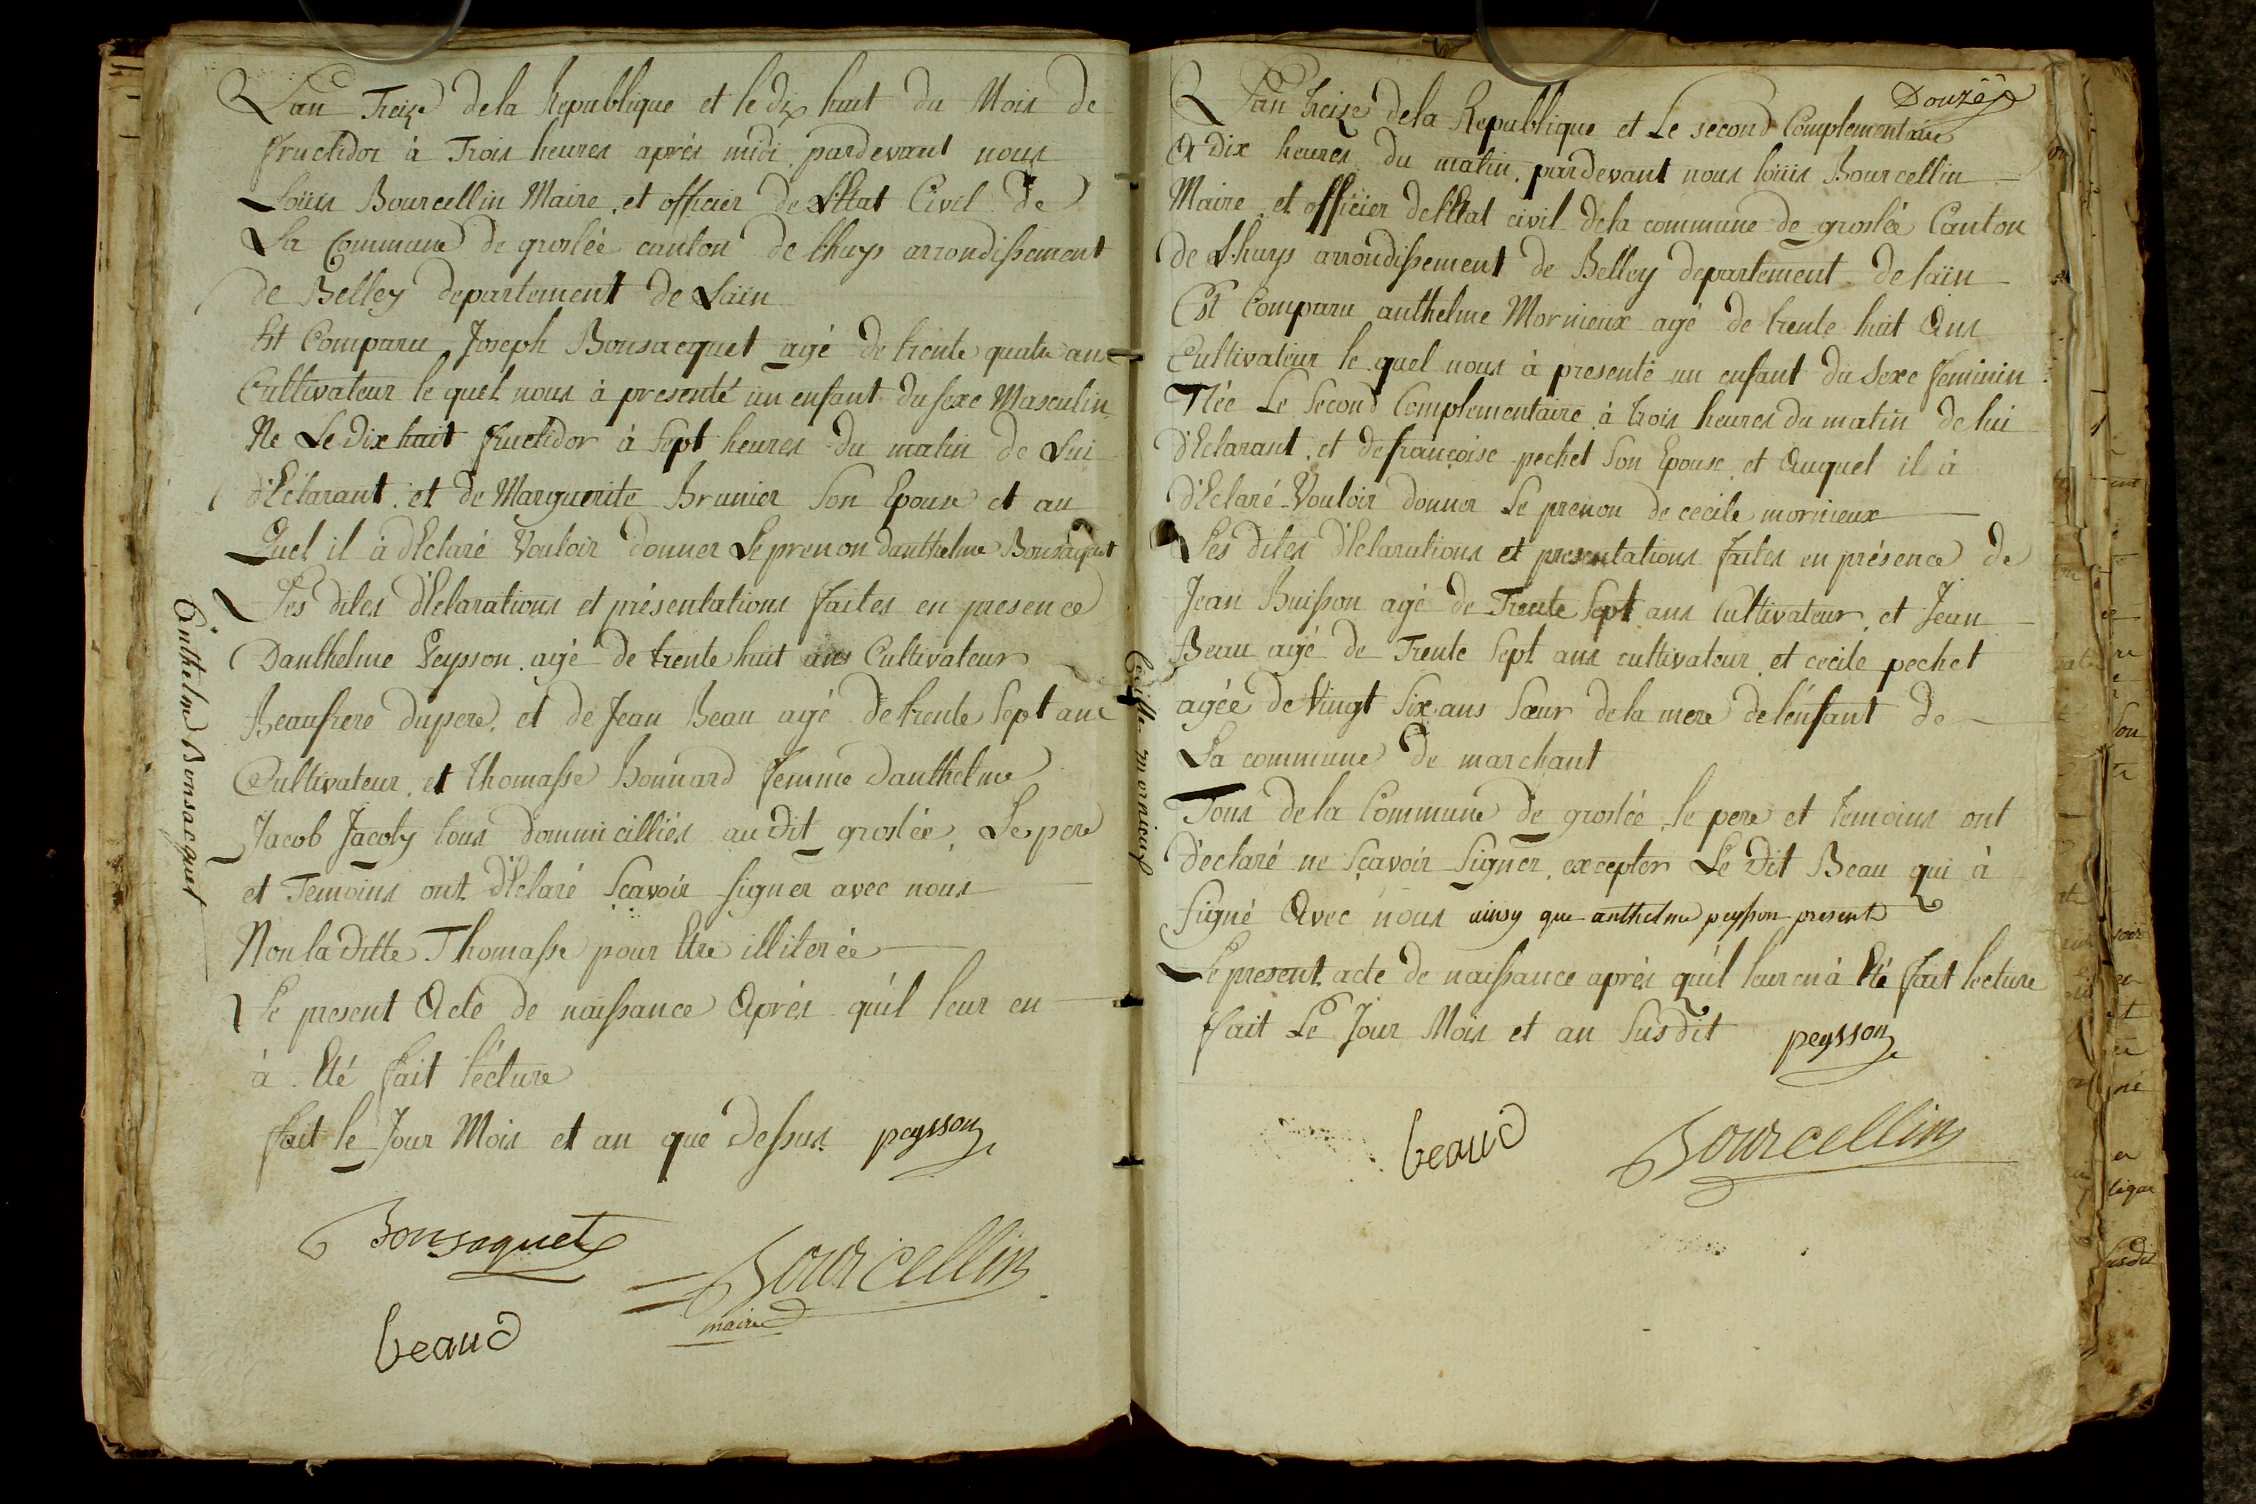 L'an Treize de la Republique et le dix huit du Mois de
fructidor à Trois heures après midi pardevant nous
Loüis Bourcellin Maire et officier de l'Etat Civil de
La Commune de groslée canton de lhuys arrondissement
de Belley departement de Lain
Est Comparu Joseph Bonsacquet agé de trente quatre ans
Cultivateur le quel nous à presenté un enfant du sexe Masculin
Né Le dix huit fructidor à sept heures du matin de Lui
d'Eclarant et de Marguerite Brunier Son Epouse et au
Quel il à d'Eclaré Vouloir donner Le prenon danthelme Bonsaquet
Les dites d'Eclarations et présentations faites en presence
Danthelme Peysson agé de trente huit ans Cultivateur
Beaufrere du pere, et de Jean Beau agé de trente Sept ans
Cultivateur, et Thomasse Bonnard femme danthelme
Jacob Jacoty tous dommicilliés au dit groslée, Le pere
et Temoins ont d'Eclaré Sçavoir signer avec nous
Non la ditte Thomasse pour Etre illiterée
Le present Acte de naissance Après qu'il leur en
à Eté fait l'écture
fait le Jour Mois et an que dessus peysson
Bonsaquet
Bourcellin
maire
beaud
Enthelme Bonsacquet
Douzê
L'an treize de la Republique et Le second Complementaire
A dix heures du matin pardevant nous loüis Bourcellin
Maire et officier de l'Etat civil de la commune de groslée Canton
de Lhuys arrondissement de Belley departement de lain
Est Comparu anthelme Mornieux agé de trente huit Ans
Cultivateur le quel nous à presenté un enfant du Sexe feminin
Née Le Second Complementaire à trois heures du matin de lui
d'Eclarant et de françoise pechet Son Epouse et Auquel il à
d'Eclaré Vouloir donner Le prenon de cecile mornieux
Les dites d'Eclarations et presentations faites en présence de
Jean Buisson agé de Trente Sept ans Cultivateur et Jean
Beau agé de Trente Sept ans cultivateur et cecile pechet
agée de Vingt Six ans Sœur de la mere de l'énfant de
La commune de marchant
Tous de la Commune de groslée le pere et temoins ont
d'eclaré ne Sçavoir Signer, excepter Le dit Beau qui à
Signé Avec nous ainsy que anthelme peysson present
Le present acte de naissance après qu'il leur en à Eté fait lecture
fait Le Jour Mois et an Susdit peysson
beaud
Bourcellin
mornieux